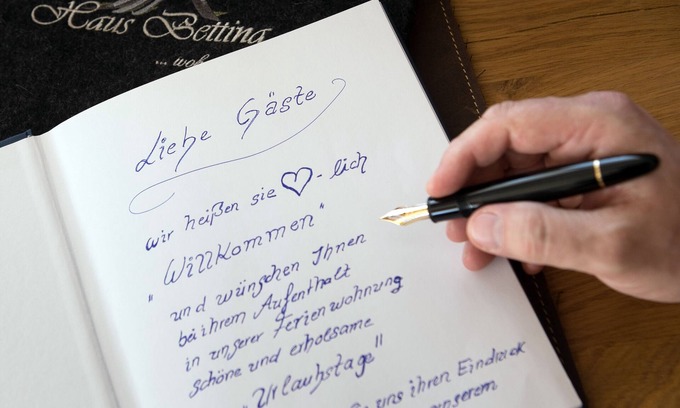 Haus Betting
...
Liebe Gäste
wir heißen sie ♡-lich
"Willkommen"
und wünschen Ihnen
bei ihrem Aufenthalt
in unserer Ferienwohnung
schöne und erholsame
"Urlaubstage"
uns ihren Eindruck
unserem